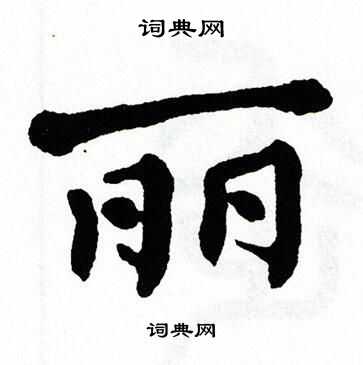 词典网
丽
词典网